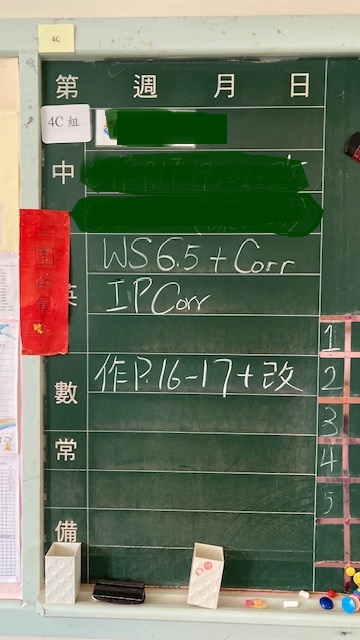 4C
第 週 月 日
4C 組
中
WS 6.5 + Corr
英
IP Corr
作 P.16-17 + 改
數
常
備
1
2
3
4
5